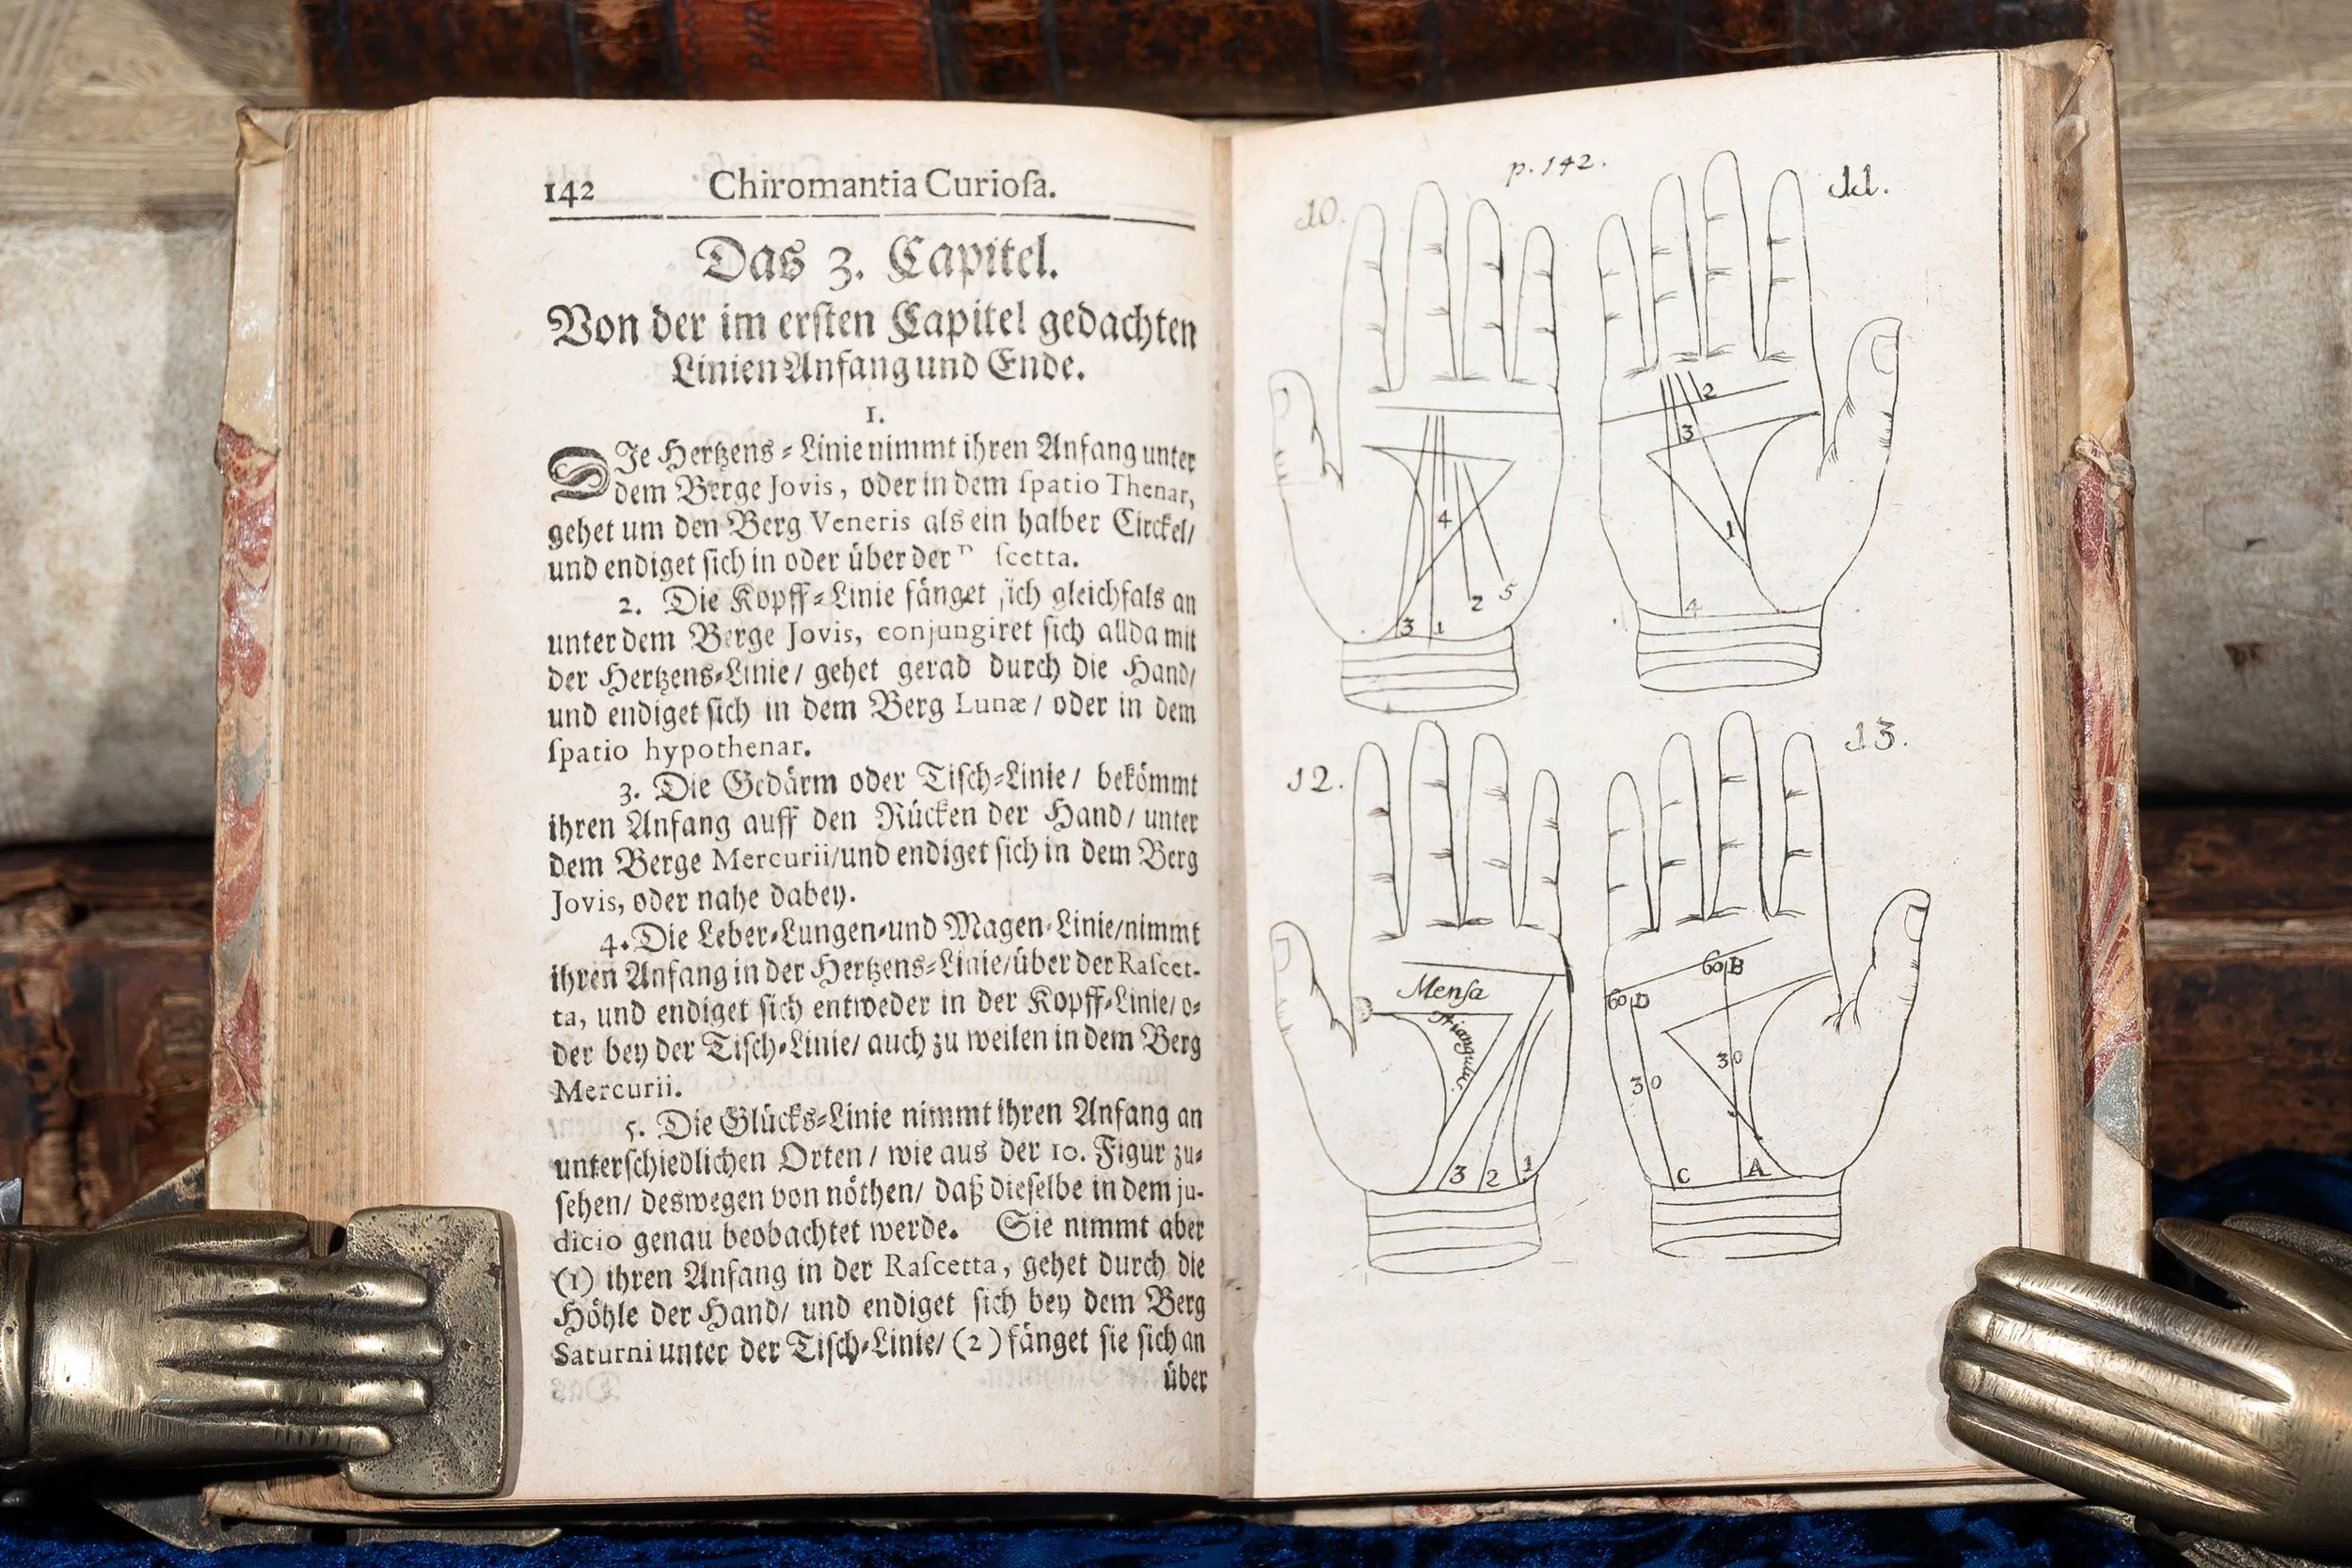 142 Chiromantia Curioſa.
Das 3. Capitel.
Von der im erſten Capitel gedachten
Linien Anfang und Ende.
1.
DIe Hertzens-Linie nimmt ihren Anfang unter
dem Berge Jovis, oder in dem ſpatio Thenar,
gehet um den Berg Veneris als ein halber Circkel/
und endiget ſich in oder über der ſcetta.
2. Die Kopff-Linie fänget ſich gleichfals an
unter dem Berge Jovis, conjungiret ſich allda mit
der Hertzens-Linie/ gehet gerad durch die Hand/
und endiget ſich in dem Berg Lunæ/ oder in dem
ſpatio hypothenar.
3. Die Gedärm oder Tiſch-Linie/ bekömmt
ihren Anfang auff den Rücken der Hand/ unter
dem Berge Mercurii/und endiget ſich in dem Berg
Jovis, oder nahe dabey.
4. Die Leber-Lungen-und Magen-Linie/nimmt
ihren Anfang in der Hertzens-Linie/über der Raſcet-
ta, und endiget ſich entweder in der Kopff-Linie/ o-
der bey der Tiſch-Linie/ auch zu weilen in dem Berg
Mercurii.
5. Die Glücks-Linie nimmt ihren Anfang an
unterſchiedlichen Orten/ wie aus der 10. Figur zu-
ſehen/ deswegen von nöthen/ daß dieſelbe in dem ju-
dicio genau beobachtet werde. Sie nimmt aber
(1) ihren Anfang in der Raſcetta, gehet durch die
Höhle der Hand/ und endiget ſich bey dem Berg
Saturni unter der Tiſch-Linie/ (2) fänget ſie ſich an
über
p. 142.
10.
4
5
2
3 1
11.
2
3
1
4
12.
Menſa
3 2 1
13.
60 B
60 D
30
30
C A